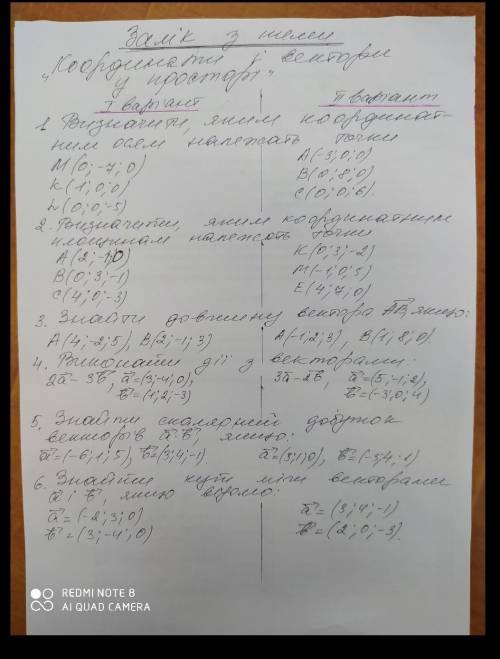 Залік з теми
„Координати і вектори
у просторі"
I варіант
II варіант
1. Визначити, яким координат-
ним осям належать точки
M(0; -7; 0)
K(1; 0; 0)
L(0; 0; -5)
A(-3; 0; 0)
B(0; 8; 0)
C(0; 0; 6).
2. Визначити, яким координатним
площинам належать точки
A(2; -1; 0)
B(0; 3; -1)
C(4; 0; -3)
K(0; 3; -2)
M(-1; 0; 5)
E(4; 7; 0)
3. Знайти довжину вектора AB, якщо:
A(4; -2; 5), B(2; -1; 3)
A(-1; 2; 3), B(1; 8; 0).
4. Виконайти дії з векторами:
2a - 3b, a=(3; -4; 0),
b=(1; 2; -3)
3a - 2b, a=(5; -1; 2),
b=(-3; 0; 4)
5. Знайти скалярний добуток
векторів a·b, якщо:
a=(-6; 1; 5), b=(3; 4; -1).
a=(3; 1; 0), b=(-3; 4; -1)
6. Знайти кути між векторами
a і b, якщо відомо:
a=(-2; 3; 0)
b=(3; -4; 0)
a=(3; 4; -1)
b=(2; 0; -3).
REDMI NOTE 8
AI QUAD CAMERA